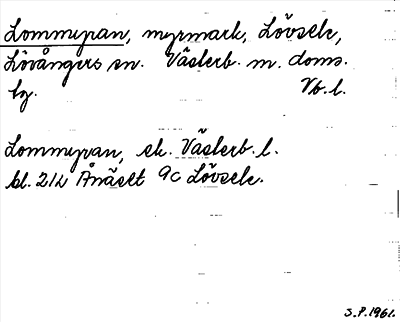 Lommyran, myrmark, Lövsele,
Lövångers sn. Västerb. m. doms.
hg. Vb. l.
Lommyran, ek. Västerb. l.
bl. 21L Ånäset 9c Lövsele.
S.P. 1961.